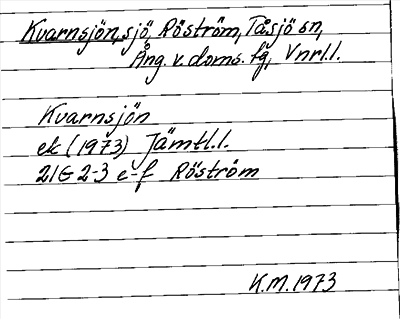 Kvarnsjön, sjö, Röström, Tåsjö sn,
Ång. v. doms. fg, Vnrl.l.
Kvarnsjön
ek (1973) Jämtl.l.
21G 2-3 e-f Röström
K.M. 1973